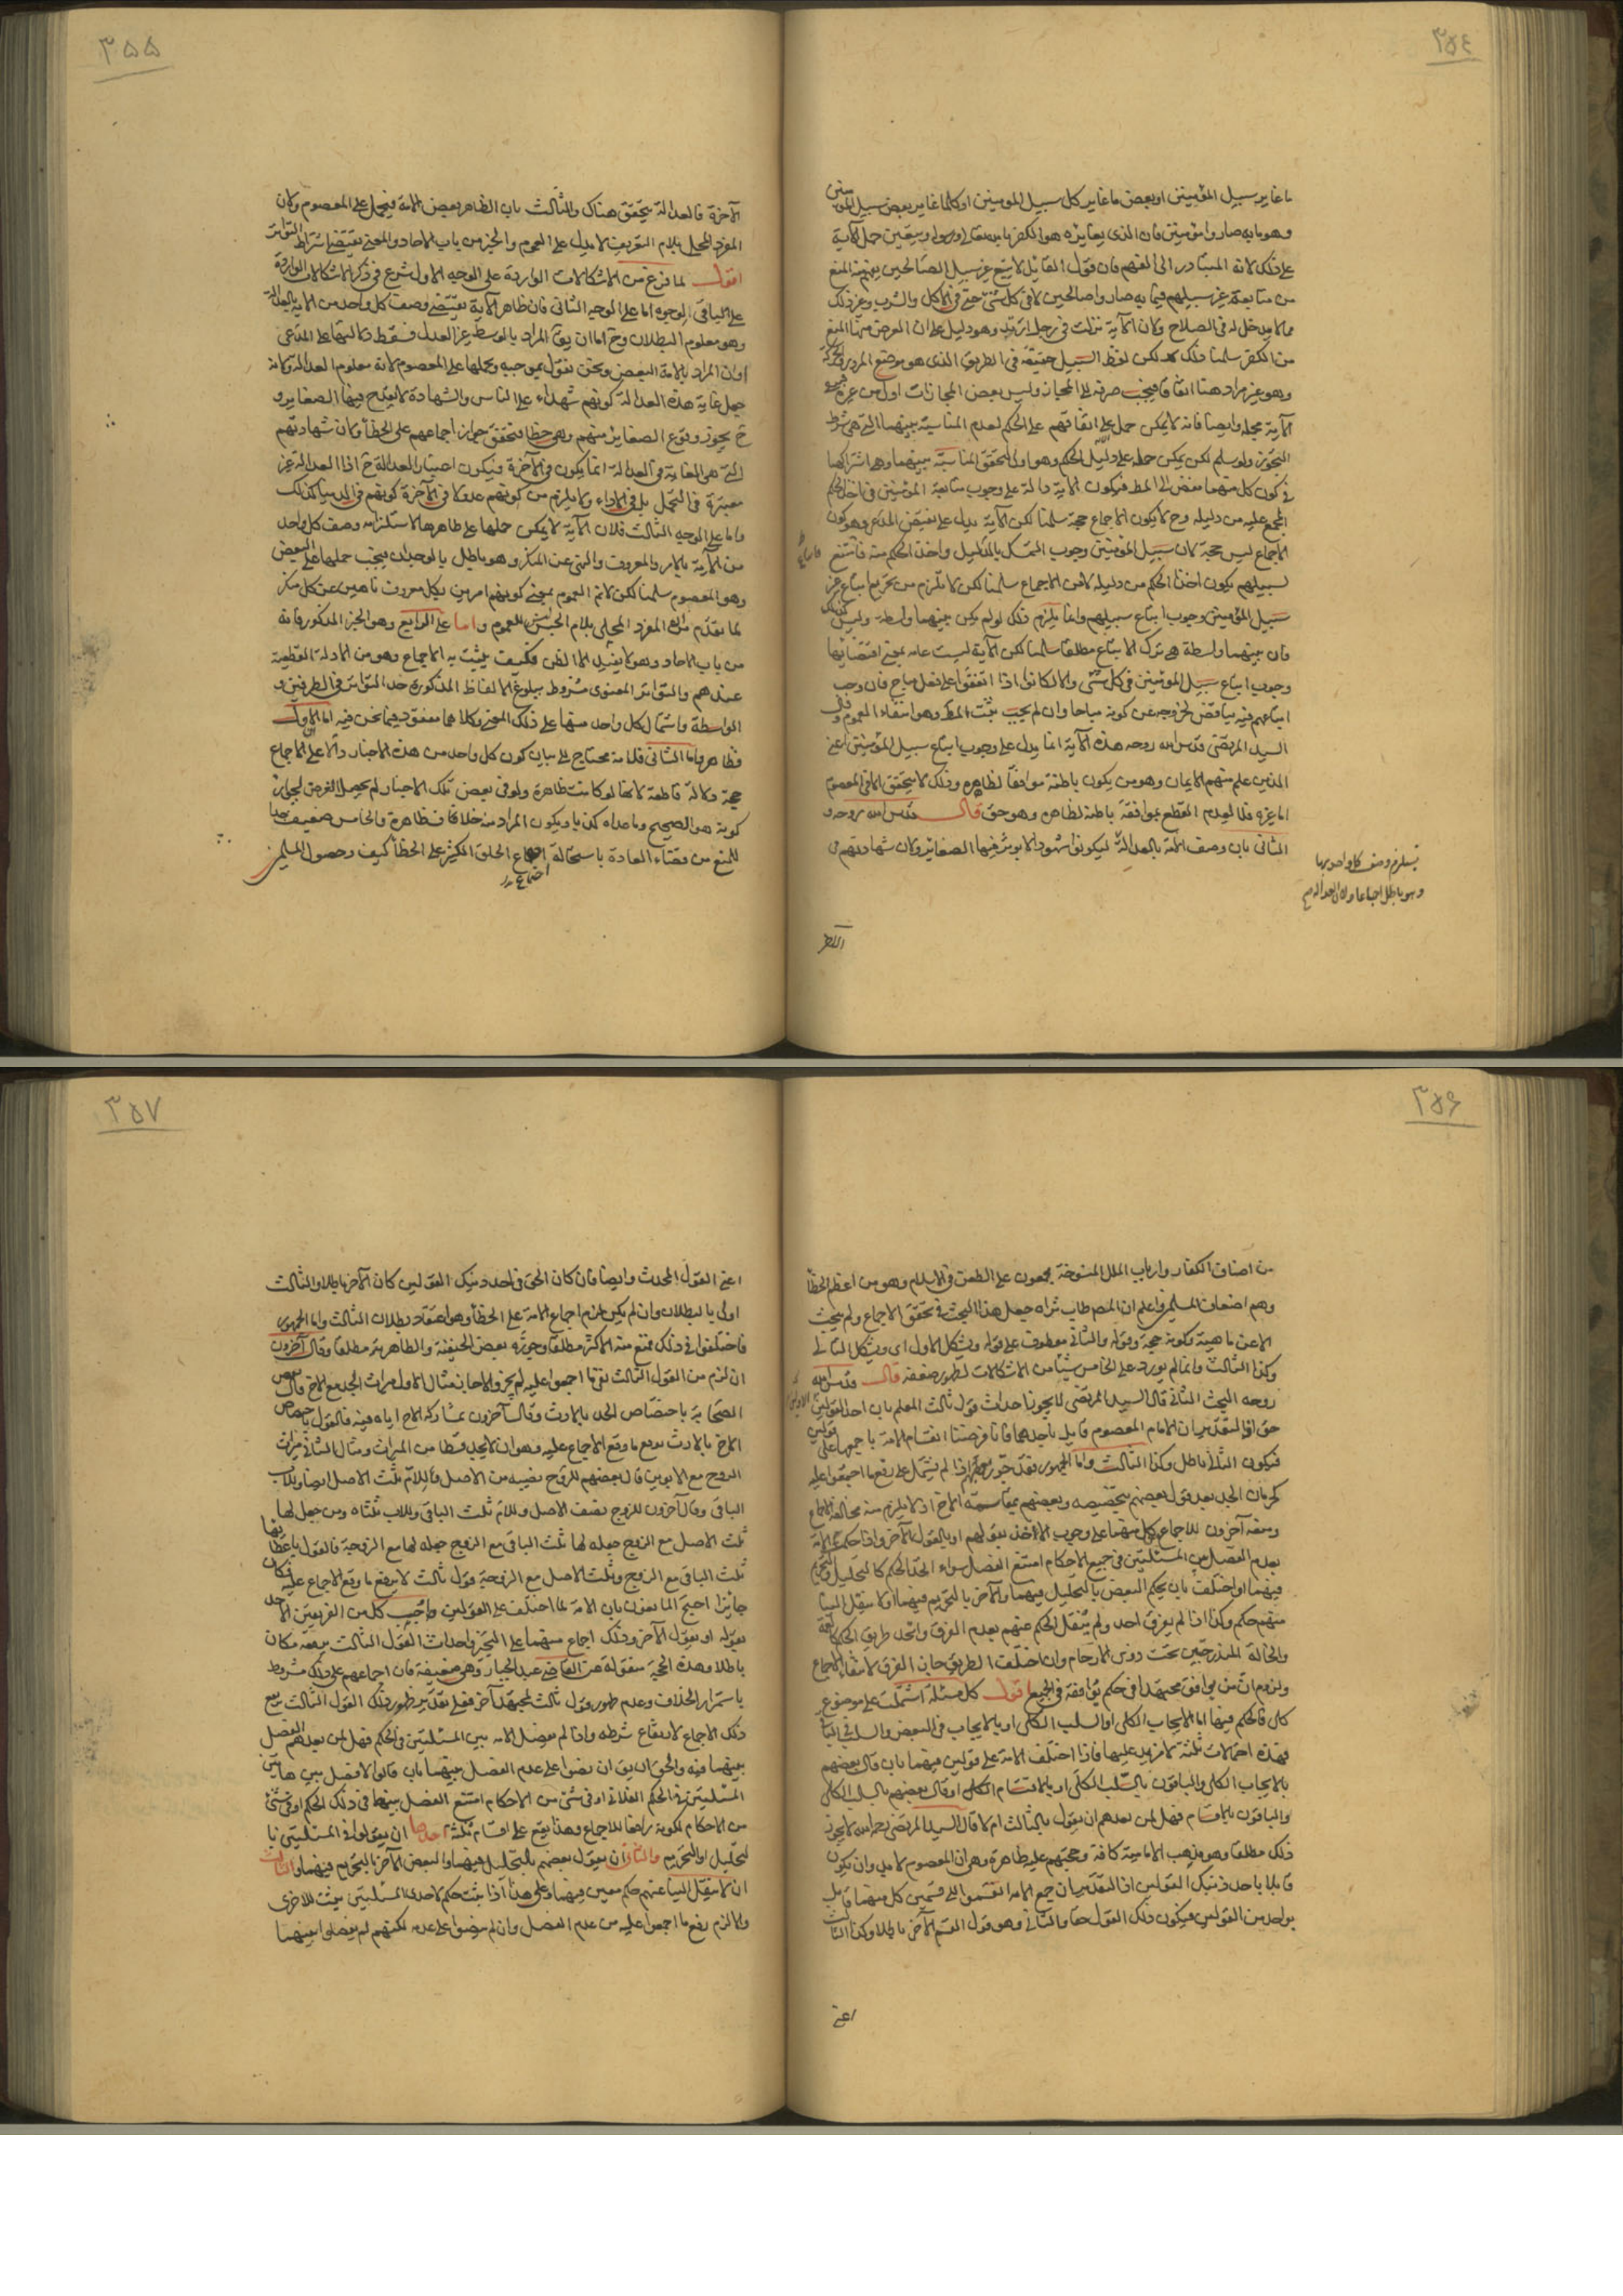 ٣٥٤
ما غاير سبيل المؤمنين او بعض ما غاير كل سبيل المومنين او كلما غاير بعض سبيل المومنين
وهو ما به صاروا مؤمنين فان الذى يغايره هو الكفر بالله تعالى ورسوله ويتعين حمل الآية
على ذلك لانه المتبادر الى الفهم فان قول القائل لا يتبع غير سبيل الصالحين يفهم منه المنع
من متابعة غير سبيلهم فيما به صاروا صالحين لا فى كل شئ حتى فى الاكل والشرب وغير ذلك
مما لا مدخل له فى الصلاح وكان الآية نزلت فى رجل ارتد وهو دليل على ان الغرض منها المنع
من الكفر سلمنا ذلك لكن لفظ السبيل حقيقة فى الطريق الذى هو موضع المرور والحركة
وهو غير مراد هنا اتفاقا فيجب صرفه الى المجاز وليس بعض المجازات اولى من غيره
الآية مجملة وايضا فانه لا يمكن حمله على اتفاقهم على الحكم لعدم المناسبة بينهما التى هى شرط
التجوز ولو سلم لكن يمكن حمله على دليل الحكم وهو اولى لتحقق المناسبة بينهما وهى اشتراكها
فى كون كل منهما مفض الى المط فيكون الآية دالة على وجوب متابعة المؤمنين فى اخذ الحكم
المجمع عليه من دليله وح لا يكون الاجماع حجة سلمنا لكن الآية يدل على نقيض المدعى وهو كون
الاجماع ليس حجة لان سبيل المؤمنين وجوب التمسك بالدليل واخذ الحكم منه
لسبيلهم يكون اخذ الحكم من دليله لا من الاجماع سلمنا لكن لا يلزم من تحريم اتباع غير
سبيل المؤمنين وجوب اتباع سبيلهم وانما يلزم ذلك لو لم يكن بينهما واسطة وليس كذلك
فان بينهما واسطة هى ترك الاتباع مطلقا سلمنا لكن الآية ليست عامة بمعنى اقتضائها
وجوب اتباع سبيل المومنين فى كل شئ والا لكانوا اذا اتفقوا على فعل مباح فان وجب
اتباعهم فيه يناقض لخروجه عن كونه مباحا وان لم يجب يثبت المط وهو انتفاء العموم وقال
السيد المرتضى قدس الله روحه هذه الآية انما يدل على وجوب اتباع سبيل المؤمنين اعنى
الذين علم منهم الايمان وهو من يكون باطنه موافقا لظاهره وذلك لا يتحقق الا فى المعصوم
اما غيره فلا لعدم القطع بموافقة باطنه لظاهره وهو حق قال قدس الله روحه و
الثانى بان وصف الامة بالعدالة ليكونوا شهودا لا يوثر فيها الصغاير وكان شهادتهم فى
يستلزم وصف كل واحد بها
وهو باطل اجماعا ولان العدالة
الآخرة
٣٥٥
الآخرة فالعدالة يتحقق هناك والثالث بان الظاهر بعض الامة فيحمل على المعصوم وكان
المفرد المحلى بلام التعريف لا يدل على العموم والخبر من باب الاحاد والمعنى يقتضى اشتراط التواتر
اقول لما فرغ من الاشكالات الواردة على الوجه الاول شرع فى ذكر الاشكالات الواردة
على الباقى الوجوه اما على الوجه الثانى فان ظاهر الآية يقتضى وصف كل واحد من الامة بالعدالة
وهو معلوم البطلان وح اما ان يق المراد بالوسط غير العدل فيسقط دلالتها على المدعى
او ان المراد بالامة البعض ونحن نقول بموجبه ونحملها على المعصوم لانه معلوم العدالة ولانه
جعل غاية هذه العدالة كونهم شهداء على الناس والشهادة لا يقدح فيها الصغاير و
ح يجوز وقوع الصغاير منهم وهى خطا فيتحقق جواز اجماعهم على الخطأ وكان شهادتهم
التى هى الغاية فى العدالة انما يكون فى الآخرة فيكون اعتبار العدالة ح اذا العدالة غير
معتبرة فى التحمل بل فى الاداء ولا يلزم من كونهم عدولا فى الآخرة كونهم فى الدنيا كذلك
واما على الوجه الثالث فلان الآية لا يمكن حملها على ظاهرها لاستلزامه وصف كل واحد
من الامة بالامر بالمعروف والنهى عن المنكر وهو باطل بالوجدان فيجب حملها على البعض
وهو المعصوم سلمنا لكن لا ثم العموم بمعنى كونهم امرين بكل معروف ناهين عن كل منكر
لما تقدم من ان المفرد المحلى بلام الجنس ليس للعموم واما على الرابع وهو الخبر المذكور فانه
من باب الاحاد وهو لا يفيد الا الظن فكيف يثبت به الاجماع وهو من الادلة القطعية
عندهم والتواتر المعنوى مشروط ببلوغ الالفاظ المذكورة حد التواتر فى الطرفين و
الواسطة واشتمال كل واحد منها على ذلك المعنى وكلاهما مفقود فيما نحن فيه اما الاول
فظاهر واما الثانى فلانه محتاج الى بيان كون كل واحد من هذه الاخبار دالا على ان الاجماع
حجة دلالة قاطعة لانها لو كانت ظاهرة ولو فى بعض تلك الاخبار لم يحصل الغرض لجواز
كونه هو الصحيح وما عداه كذبا ويكون المراد منه خلاف ظاهره والخامس ضعيف جدا
للمنع من قضاء العادة باستحالة اجماع الخلق الكثير على الخطأ كيف وخصوم المسلمين
٣٥٦
من اصناف الكفار وارباب الملل المنسوخة يجمعون على الطعن فى الاسلام وهو من اعظم الخطأ
وهم اضعاف المسلمين واعلم ان المصر طاب ثراه جعل هذا البحث فى تحقق الاجماع ولم يبحث
الا عن ماهيته وكونه حجة وقوله والثانى معطوف على قوله ويشكل الاول اى ويشكل الثانى
وكذا الثالث وانما لم يورد على الخامس شيئا من الاشكالات لظهور ضعفه قال قدس الله
روحه البحث الثانى قال السيد المرتضى لا يجوز احداث قول ثالث للعلم بان احد القولين
حق اذ التقدير ان الامام المعصوم قايل باحدهما فانا فرضنا انقسام الامة باجمعها على قولين
فيكون الثالث باطل وكذا الثالث واما الجمهور فقد جوز بعضهم اذا لم يشتمل على رفع ما اجمعوا عليه
كحرمان الجد بعد قول بعضهم بتخصيصه وبعضهم بمقاسمة الاخ اذ لا يلزم منه مخالفة الاجماع
ومنعه آخرون للاجماع كل منهما على وجوب الاخذ بقولهم او بالقول الآخر واذا حكمت الامة
بعدم الفصل بين المسئلتين فى جميع الاحكام امتنع الفصل سواء اتحد الحكم كالتحليل والتحريم
فيهما او اختلف بان يحكم البعض بالتحليل فيهما والآخر بالتحريم فيهما او لا ينقل الينا
منهم حكم وكذا اذا لم يفرق احد ولم ينقل الحكم عنهم بعدم الفرق واتحد طريق الحكم كالعمة
والخالة المندرجتين تحت ذوى الارحام وان اختلف الطريق جاز الفرق لانتفاء الاجماع
ولزوم ان من يوافق مجتهدا فى حكم يوافقه فى الجميع اقول كل مسئلة اشتملت على موضوع
كلى فالحكم فيها اما الايجاب الكلى او السلب الكلى او بالايجاب فى البعض والسلب فى الباقى
فهذه احتمالات ثلثة لا مزيد عليها فاذا اختلف الامة على قولين فيهما بان قال بعضهم
بالايجاب الكلى والباقون بالسلب الكلى او بالاقتسام الكلى او قال بعضهم بالسلب الكلى
والباقون بالاقتسام فهل لمن بعدهم ان يقول بالثالث ام لا قال السيد المرتضى رحمه الله لا يجوز
ذلك مطلقا وهو مذهب الامامية كافة وحجتهم عليه ظاهرة وهى ان المعصوم لا بد وان يكون
قايلا باحد ذينك القولين اذ التقدير ان جميع الامة انقسموا الى قسمين كل منهما قايل
بواحد من القولين فيكون ذلك القول حقا والثانى وهو قول القسم الآخر باطلا وكذا الثالث
اعنى
٣٥٧
اعنى القول المحدث وايضا فان كان الحق فى احد ذينك القولين كان الآخر باطلا والثالث
اولى بالبطلان وان لم يكن لزم اجماع الامة على الخطأ وهو اعتقاد بطلان الثالث واما الجمهور
فاختلفوا فى ذلك فمنع منه الاكثر مطلقا وجوزه بعض الحنيفة والظاهرية مطلقا وقال آخرون
ان لزم من القول الثالث رفع ما اجمعوا عليه لم يجز والا جاز مثال الاول ميراث الجد مع الاخ قال بعض
الصحابة باختصاص الجد بالارث وقال آخرون بمشاركة الاخ اياه فيه فالقول باختصاص
الاخ بالارث يرفع ما وقع الاجماع عليه وهو ان للجد قسطا من الميراث ومثال الثانى ميراث
الزوج مع الابوين قال بعضهم للزوج نصيبه من الاصل وللام ثلث الاصل ايضا وللاب
الباقى وقال آخرون للزوج نصف الاصل وللام ثلث الباقى وللاب ثلثاه ومن جعل لها
ثلث الاصل مع الزوج جعله لها ثلث الباقى مع الزوج جعله لها مع الزوجة فالقول باعطائها
ثلث الباقى مع الزوج وثلث الاصل مع الزوجة قول ثالث لا يرفع ما وقع الاجماع عليه فكان
جايزا احتج المانعون بان الامة لما اختلف على القولين واوجب كل من الفريقين الاخذ
بقوله او بقول الآخر وذلك اجماع منهما على التخيير واحداث القول الثالث يرفعه فكان
باطلا وهذه الحجة منقولة عن القاضى عبد الجبار وهى ضعيفة فان اجماعهم على ذلك مشروط
باستمرار الخلاف وعدم ظهور قول ثالث لمجتهد آخر فعلى تقدير ظهور ذلك القول الثالث يرتفع
ذلك الاجماع لارتفاع شرطه واذا لم يفصل الامة بين المسئلتين فى الحكم فهل لمن بعدهم الفصل
بينهما فيه والحق ان يق ان نصوا على عدم الفصل بينهما بان قالوا لا فصل بين هاتين
المسئلتين فى الحكم الفلانى او فى شئ من الاحكام امتنع الفصل بينهما فى ذلك الحكم او فى شئ
من الاحكام لكونه رافعا للاجماع وهذا يقع على اقسام ثلثة احدها ان يقولوا فى المسئلتين با
لتحليل او بالتحريم والثانى ان يقول بعضهم بالتحليل فيهما والبعض الآخر بالتحريم فيهما والثالث
ان لا ينقل الينا عنهم حكم معين فيهما وعلى هذا اذا يثبت حكم لاحدى المسئلتين يثبت للاخرى
والا لزم رفع ما اجمعوا عليه من عدم الفصل وان لم ينصوا على عدمه لكنهم لم يفصلوا بينهما